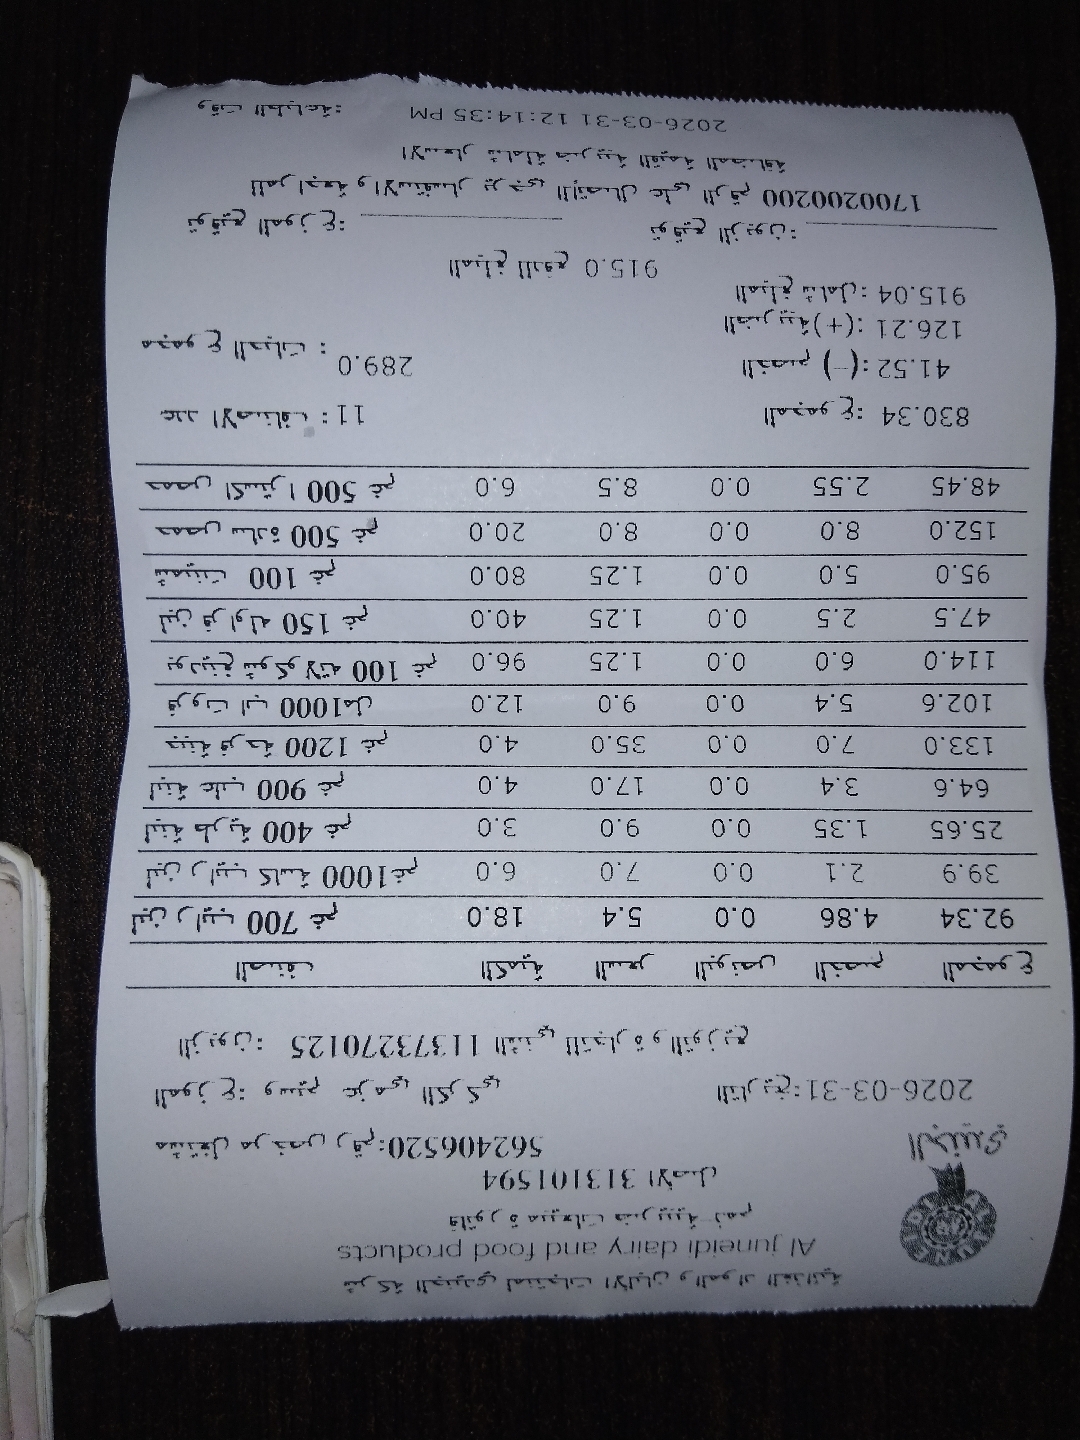 شركة الجنيدي لمنتجات الألبان والمواد الغذائية
Al juneidi dairy and food products
فاتورة مبيعات ضريبية نمم
313101594 الأصل
مشتغل مرخص رقم:562406520
الجنيدي
الموزع: وسيم عزمي الكركي التاريخ:2026-03-31
الزبون: 11373270125 القني للتجارة والتوزيع
الصنف الكمية السعر البونص الخصم المجموع
لبن رايب 700 غم 18.0 5.4 0.0 4.86 92.34
لبن رايب كاسة 1000غم 6.0 7.0 0.0 2.1 39.9
لبنة طرية 400 غم 3.0 9.0 0.0 1.35 25.65
لبنة علب 900 غم 4.0 17.0 0.0 3.4 64.6
جبنة فرحة 1200 غم 4.0 35.0 0.0 7.0 133.0
فروت اب 1000مل 12.0 9.0 0.0 5.4 102.6
بودينغ شوكولاته 100 غم 96.0 1.25 0.0 6.0 114.0
لبن فراوله 150 غم 40.0 1.25 0.0 2.5 47.5
شمينت 100 غم 80.0 1.25 0.0 5.0 95.0
حمص سادة 500 غم 20.0 8.0 0.0 8.0 152.0
حمص اكسترا 500 غم 6.0 8.5 0.0 2.55 48.45
عدد الاصناف : 11 المجموع: 830.34
الخصم (-): 41.52
مجموع الحبات : 289.0
الضريبة(+): 126.21
المبلغ شامل: 915.04
المبلغ للدفع 915.0
توقيع الموزع: توقيع الزبون:
للمراجعة والاستفسار يرجى الاتصال على الرقم 1700200200
الاسعار شاملة ضريبة القيمة المضافة
وقت الطباعة: 2026-03-31 12:14:35 PM